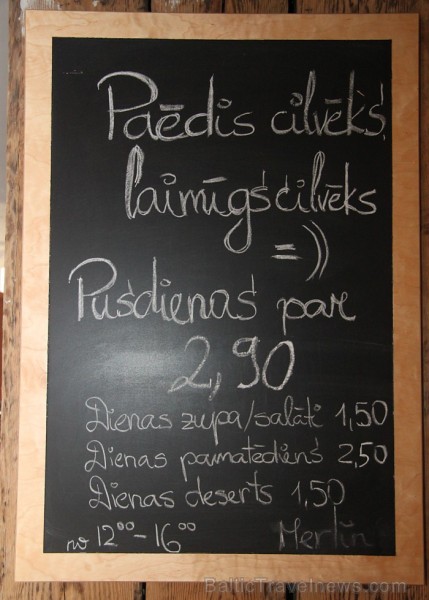 Paēdis cilvēks,
laimīgs cilvēks
=))
Pusdienas par
2,90
Dienas zupa/salāti 1,50
Dienas pamatēdiens 2,50
Dienas deserts 1,50
no 12⁰⁰-16⁰⁰ Merlin
BalticTravelnews.com